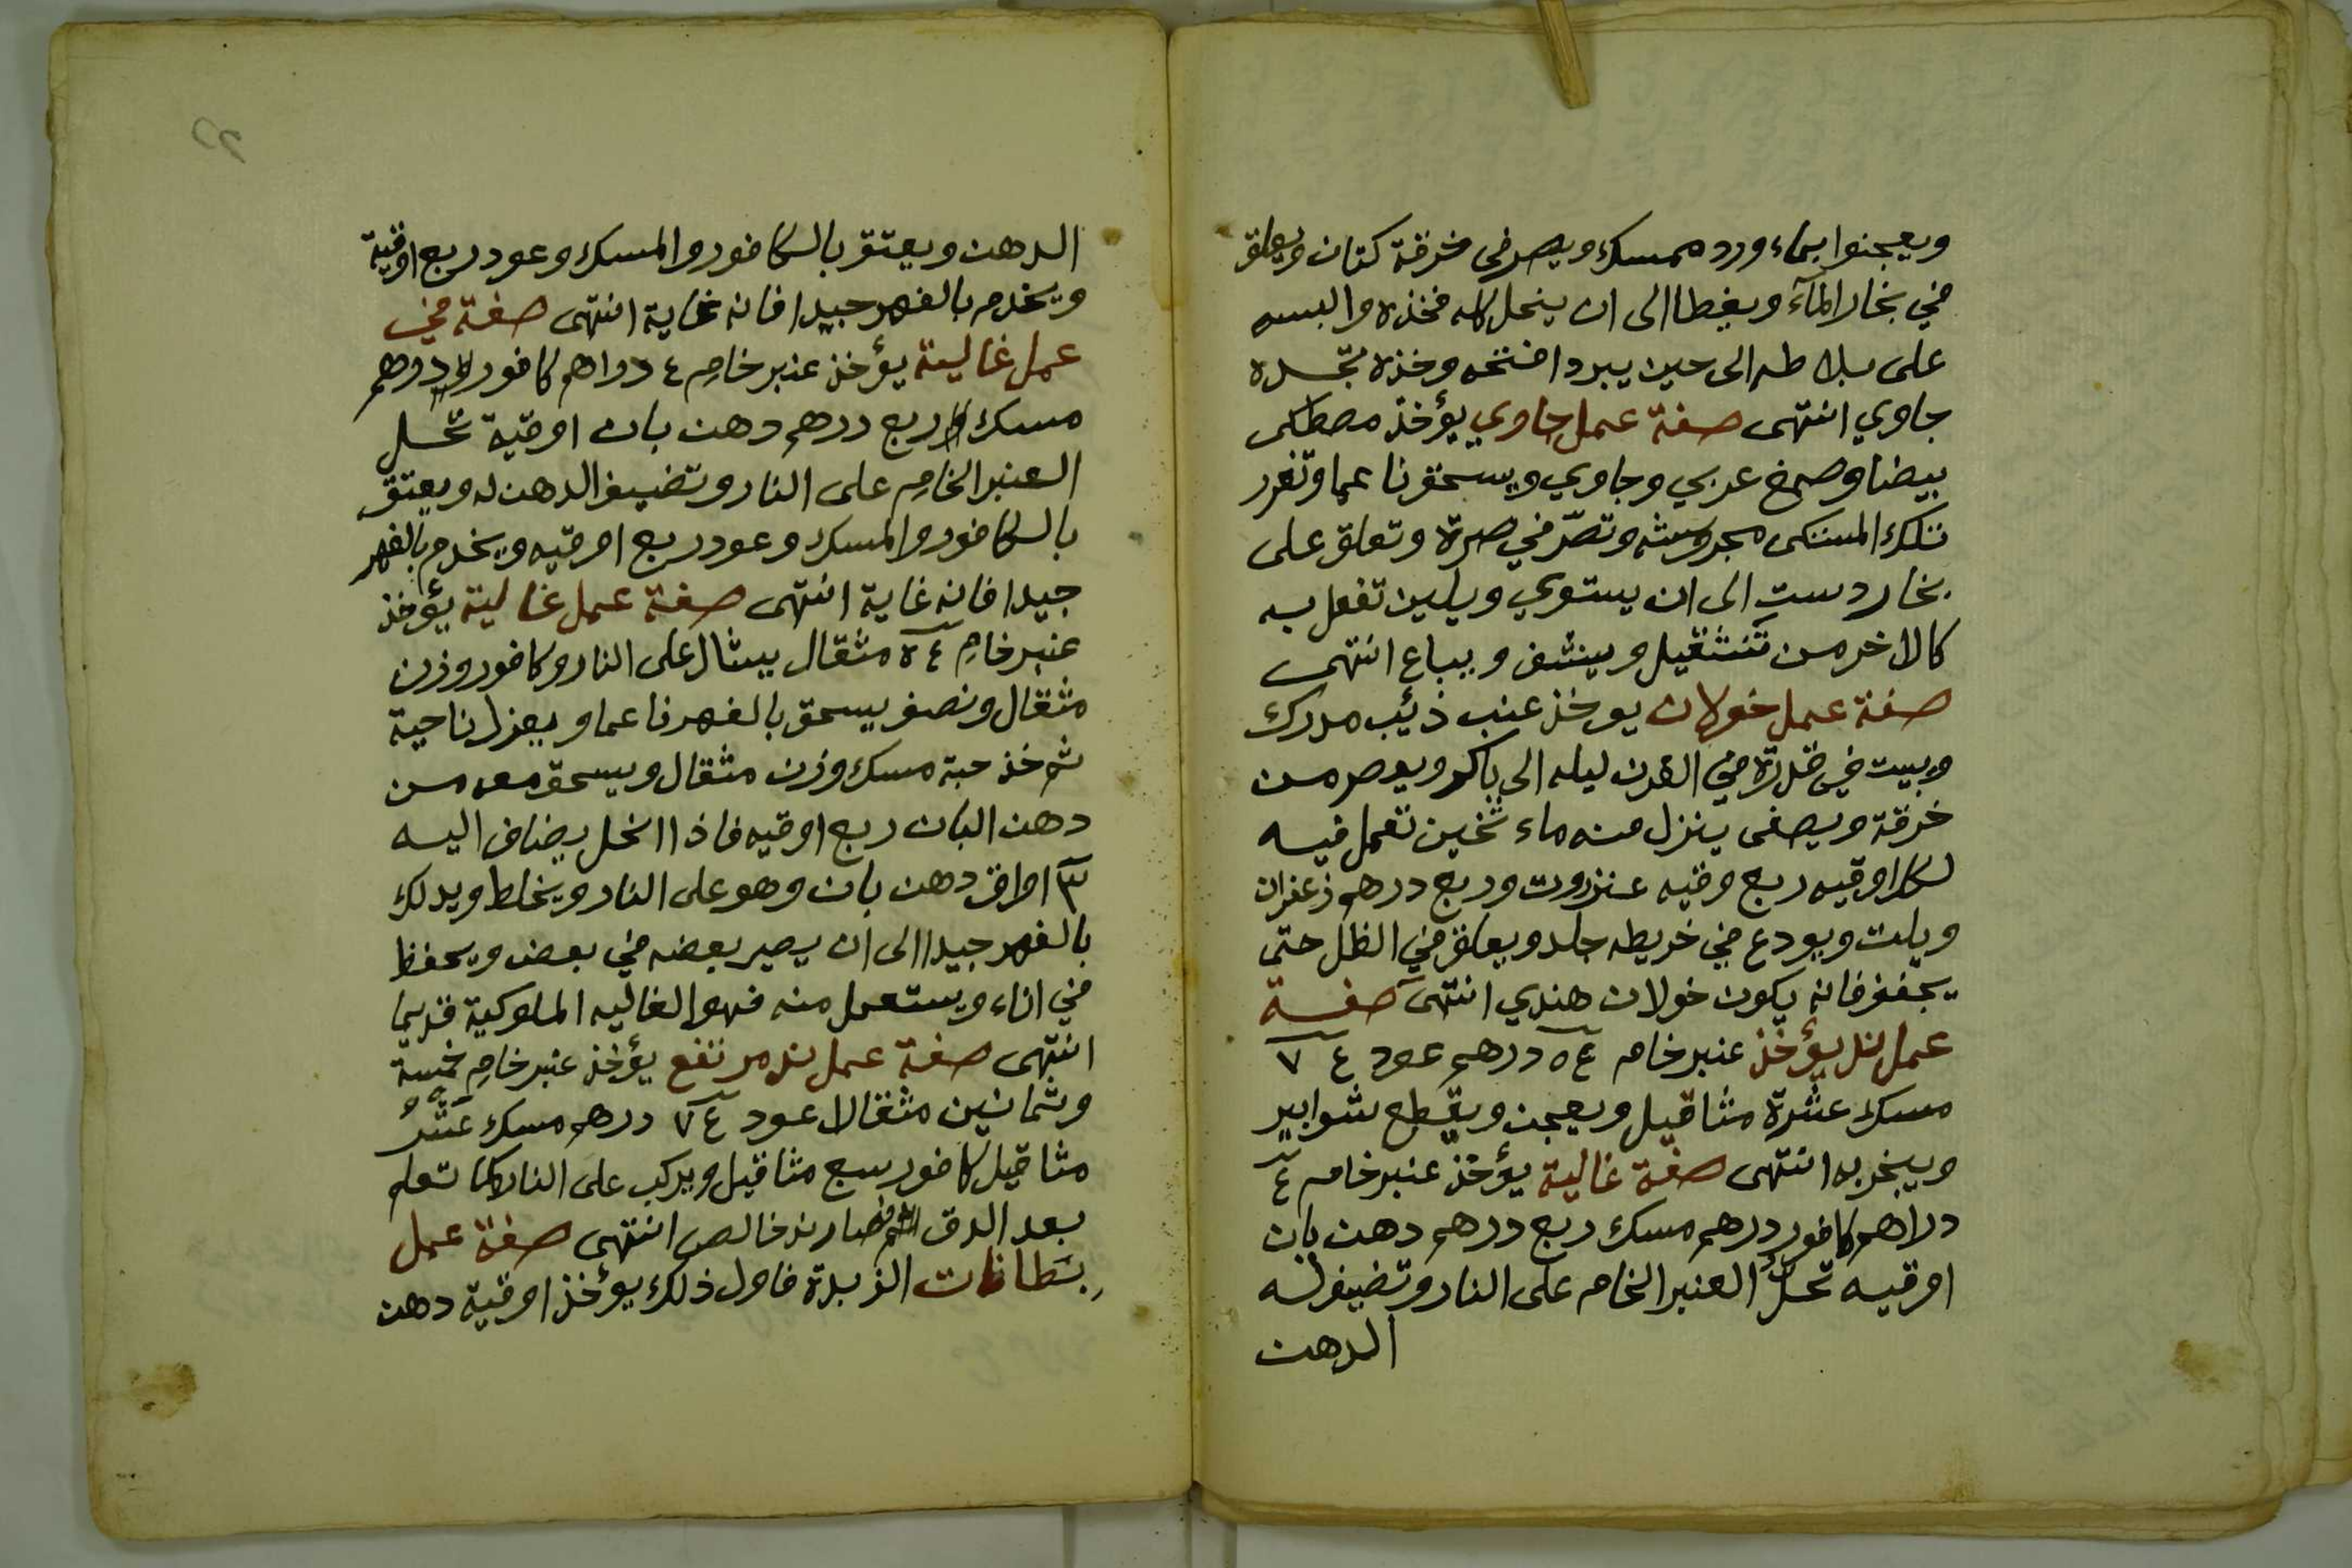 ويعجنوا بماء ورد ممسك ويصر في خرقة كتان ويعلق
في بخار المآء ويغطا الى ان ينحل كله فخذه والبسه
على بلاطه الى حين يبرد افتحه وخذه تجده
جاوي انتهى صفة عمل جاوي يؤخذ مصطكى
بيضا وصمغ عربي وجاوي ويسحق ناعما وتغرر
تلك المستكى مجروشه وتصّر في صرة وتعلق على
بخار دست الى ان يستوي ويلين تفعل به
كالاخر من تتثقيل وينشف ويباع انتهى
صفة عمل خولان يوخذ عنب ذئيب مدرك
ويبيت في قدرة في الفرن ليله الى باكر ويعصر من
خرقة ويصفى ينزل منه ماء ثخين تعمل فيه
لكل اوقيه ربع وقيه عنزروت وربع درهم زعفران
ويلت ويودع في خريطه جلد ويعلق في الظل حتى
يجفف فانه يكون خولان هندي انتهى صفة
عمل ند يؤخذ عنبر خام ٥٤ درهم عود ٧٤
مسك عشرة مثاقيل ويعجن ويقطع شوابير
ويبخر به انتهى صفة غالية يؤخذ عنبر خام ٤
دراهم كافور درهم مسك ربع درهم دهن بان
اوقيه تحلّ العنبر الخام على النار وتضيف له
الدهن
الدهن ويعتق بالكافور والمسك وعود ربع اوقية
ويخدم بالفهر جيدا فانه غاية انتهى صفة في
عمل غالية يؤخذ عنبر خام ٤ دراهم كافور درهم
مسك ربع درهم دهن بان اوقية تحل
العنبر الخام على النار وتضيف الدهن له ويعتق
بالكافور والمسك وعود ربع اوقيه ويخدم بالفهر
جيدا فانه غاية انتهى صفة عمل غالية يؤخذ
عنبر خام ٥٤ مثقال يشال على النار وكافور وزن
مثقال ونصف يسحق بالفهر ناعما ويعزل ناحية
ثم خذ حبة مسك وزن مثقال ويسحق معه من
دهن البان ربع اوقيه فاذا انحل يضاف اليه
٣ اواق دهن بان وهو على النار ويخلط ويدلك
بالفهر جيدا الى ان يصير بعضه في بعض ويحفظ
في اناء ويستعمل منه فهو الغاليه الملوكية قديما
انتهى صفة عمل ند مرتفع يؤخذ عنبر خام خمسة
وثمانين مثقالا عود ٧٤ درهم مسك عشر
مثاقيل كافور سبع مثاقيل ويركب على النار كما تعلم
بعد الدق صار ند خالص انتهى صفة عمل
بسطانات الزبدة فاول ذلك يؤخذ اوقية دهن